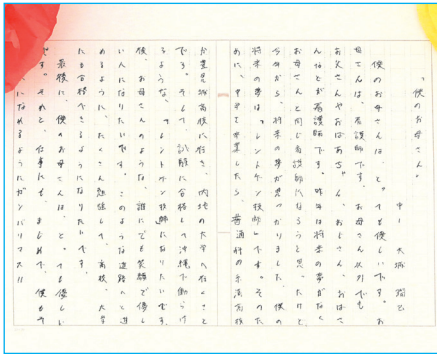 "僕のお母さん"
中一 大城
僕のお母さんは、とっても優しいです。お
母さんは、看護師です。お母さん以外でも
お父さんやおばあちゃん、おじさん、おばさ
んなどが看護師です。昨年は将来の夢がなく
お母さんと同じ看護師になろうと思ったけど
今年から、将来の夢が見つかりました。僕の
将来の夢は「レントゲン技師」です。そのた
めに、中学を卒業したら、普通科の糸満高校
か豊見城高校に行き、内地の大学へ行くこと
です。そして、試験に合格して沖縄で働らけ
るような、「レントゲン技師」になりたいです。
僕、お母さんのような、誰にでも笑顔で優し
い人になりたいです。このような進路へと進
めるように、たくさん勉強して、高校、大学
にも合格できるようになりたいです。
最後に、僕のお母さんは、とっても優しい
です。それと、仕事にも、まじめで、僕もそ
になれるようにガンバリマス!!